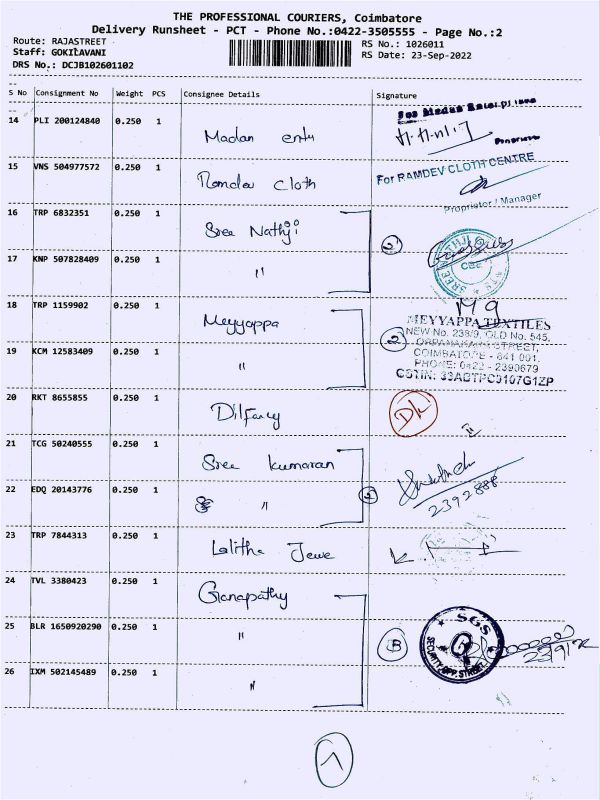 THE PROFESSIONAL COURIERS, Coimbatore
Delivery Runsheet - PCT - Phone No.:0422-3505555 - Page No.:2
Route: RAJASTREET
Staff: GOKILAVANI
DRS No.: DCJB102601102
RS No.: 1026011
RS Date: 23-Sep-2022
S No Consignment No Weight PCS Consignee Details Signature
14 PLI 200124840 0.250 1 Madan
15 VNS 504977572 0.250 1 Ramdev Cloth
For RAMDEV CLOTH CENTRE
Proprietor / Manager
16 TRP 6832351 0.250 1 Sree Nathji
2
17 KNP 507828409 0.250 1 "
18 TRP 1159902 0.250 1 Meyyappa
MEYYAPPA TEXTILES
NEW No. 239/9, OLD No. 545,
OPPANAKARA STREET,
COIMBATORE - 641 001.
PHONE: 0422 - 2390679
2
19 KCM 12583409 0.250 1 "
20 RKT 8655855 0.250 1
21 TCG 50240555 0.250 1 Sree Kumaran
22 EDQ 20143776 0.250 1 "
2
2392888
23 TRP 7844313 0.250 1 Lalitha Jewe
24 TVL 3380423 0.250 1 Ganapathy
25 BLR 1650920290 0.250 1 "
SGS
SECURITY
STREET
26 IXM 502145489 0.250 1 "